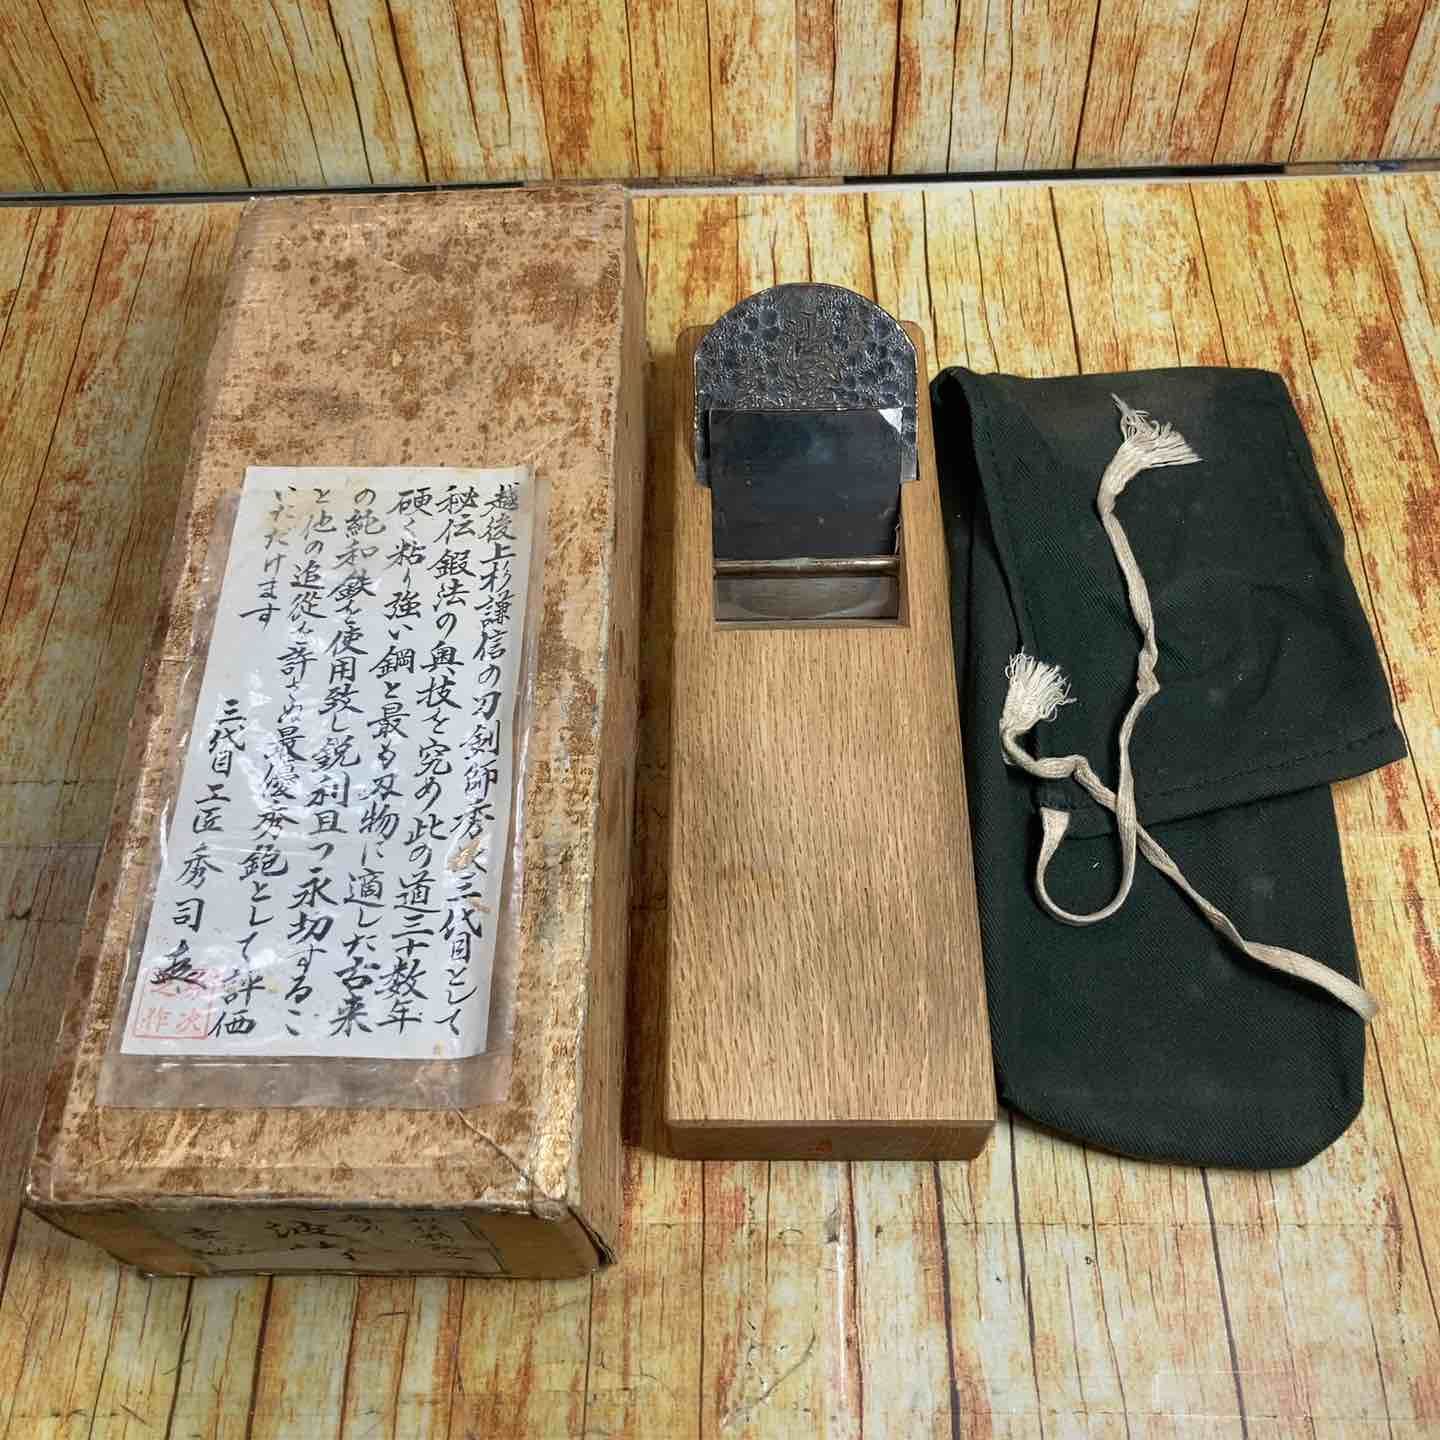 越後上杉謙信の刀剣師秀次三代目として
秘伝鍛法の奥技を究め此の道三十数年
硬く粘り強い鋼と最も刃物に適した古来
の純和鉄を使用致し鋭利且つ永切するこ
と他の追従を許さぬ最優秀鉋として評価
いただけます
三代目 工匠 秀司
作 次